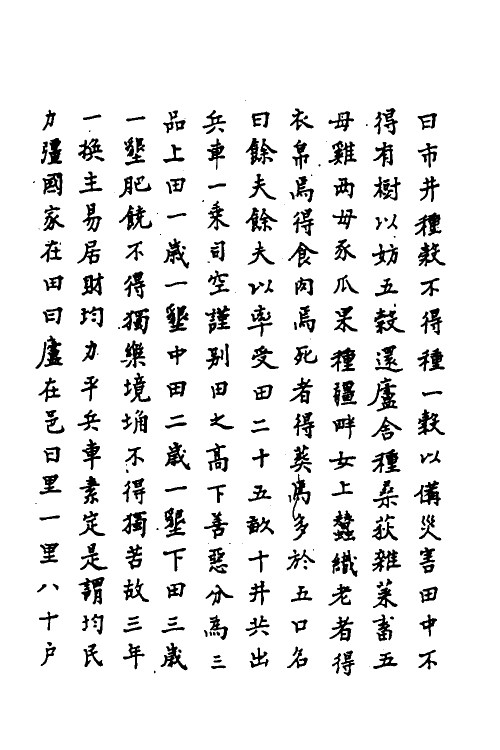 曰市井種穀不得種一穀以備災害田中不
得有樹以妨五穀還廬舍種桑荻雜菜畜五
母雞兩母豕瓜果種疆畔女上蠶織老者得
衣帛焉得食肉焉死者得葬焉多於五口名
曰餘夫餘夫以率受田二十五畝十井共出
兵車一乗司空謹别田之高下善惡分為三
品上田一歲一墾中田二歲一墾下田三歲
一墾肥饒不得獨樂境埆不得獨苦故三年
一換主易居財均力平兵車素定是謂均民
力彊國家在田曰廬在邑曰里一里八十戶